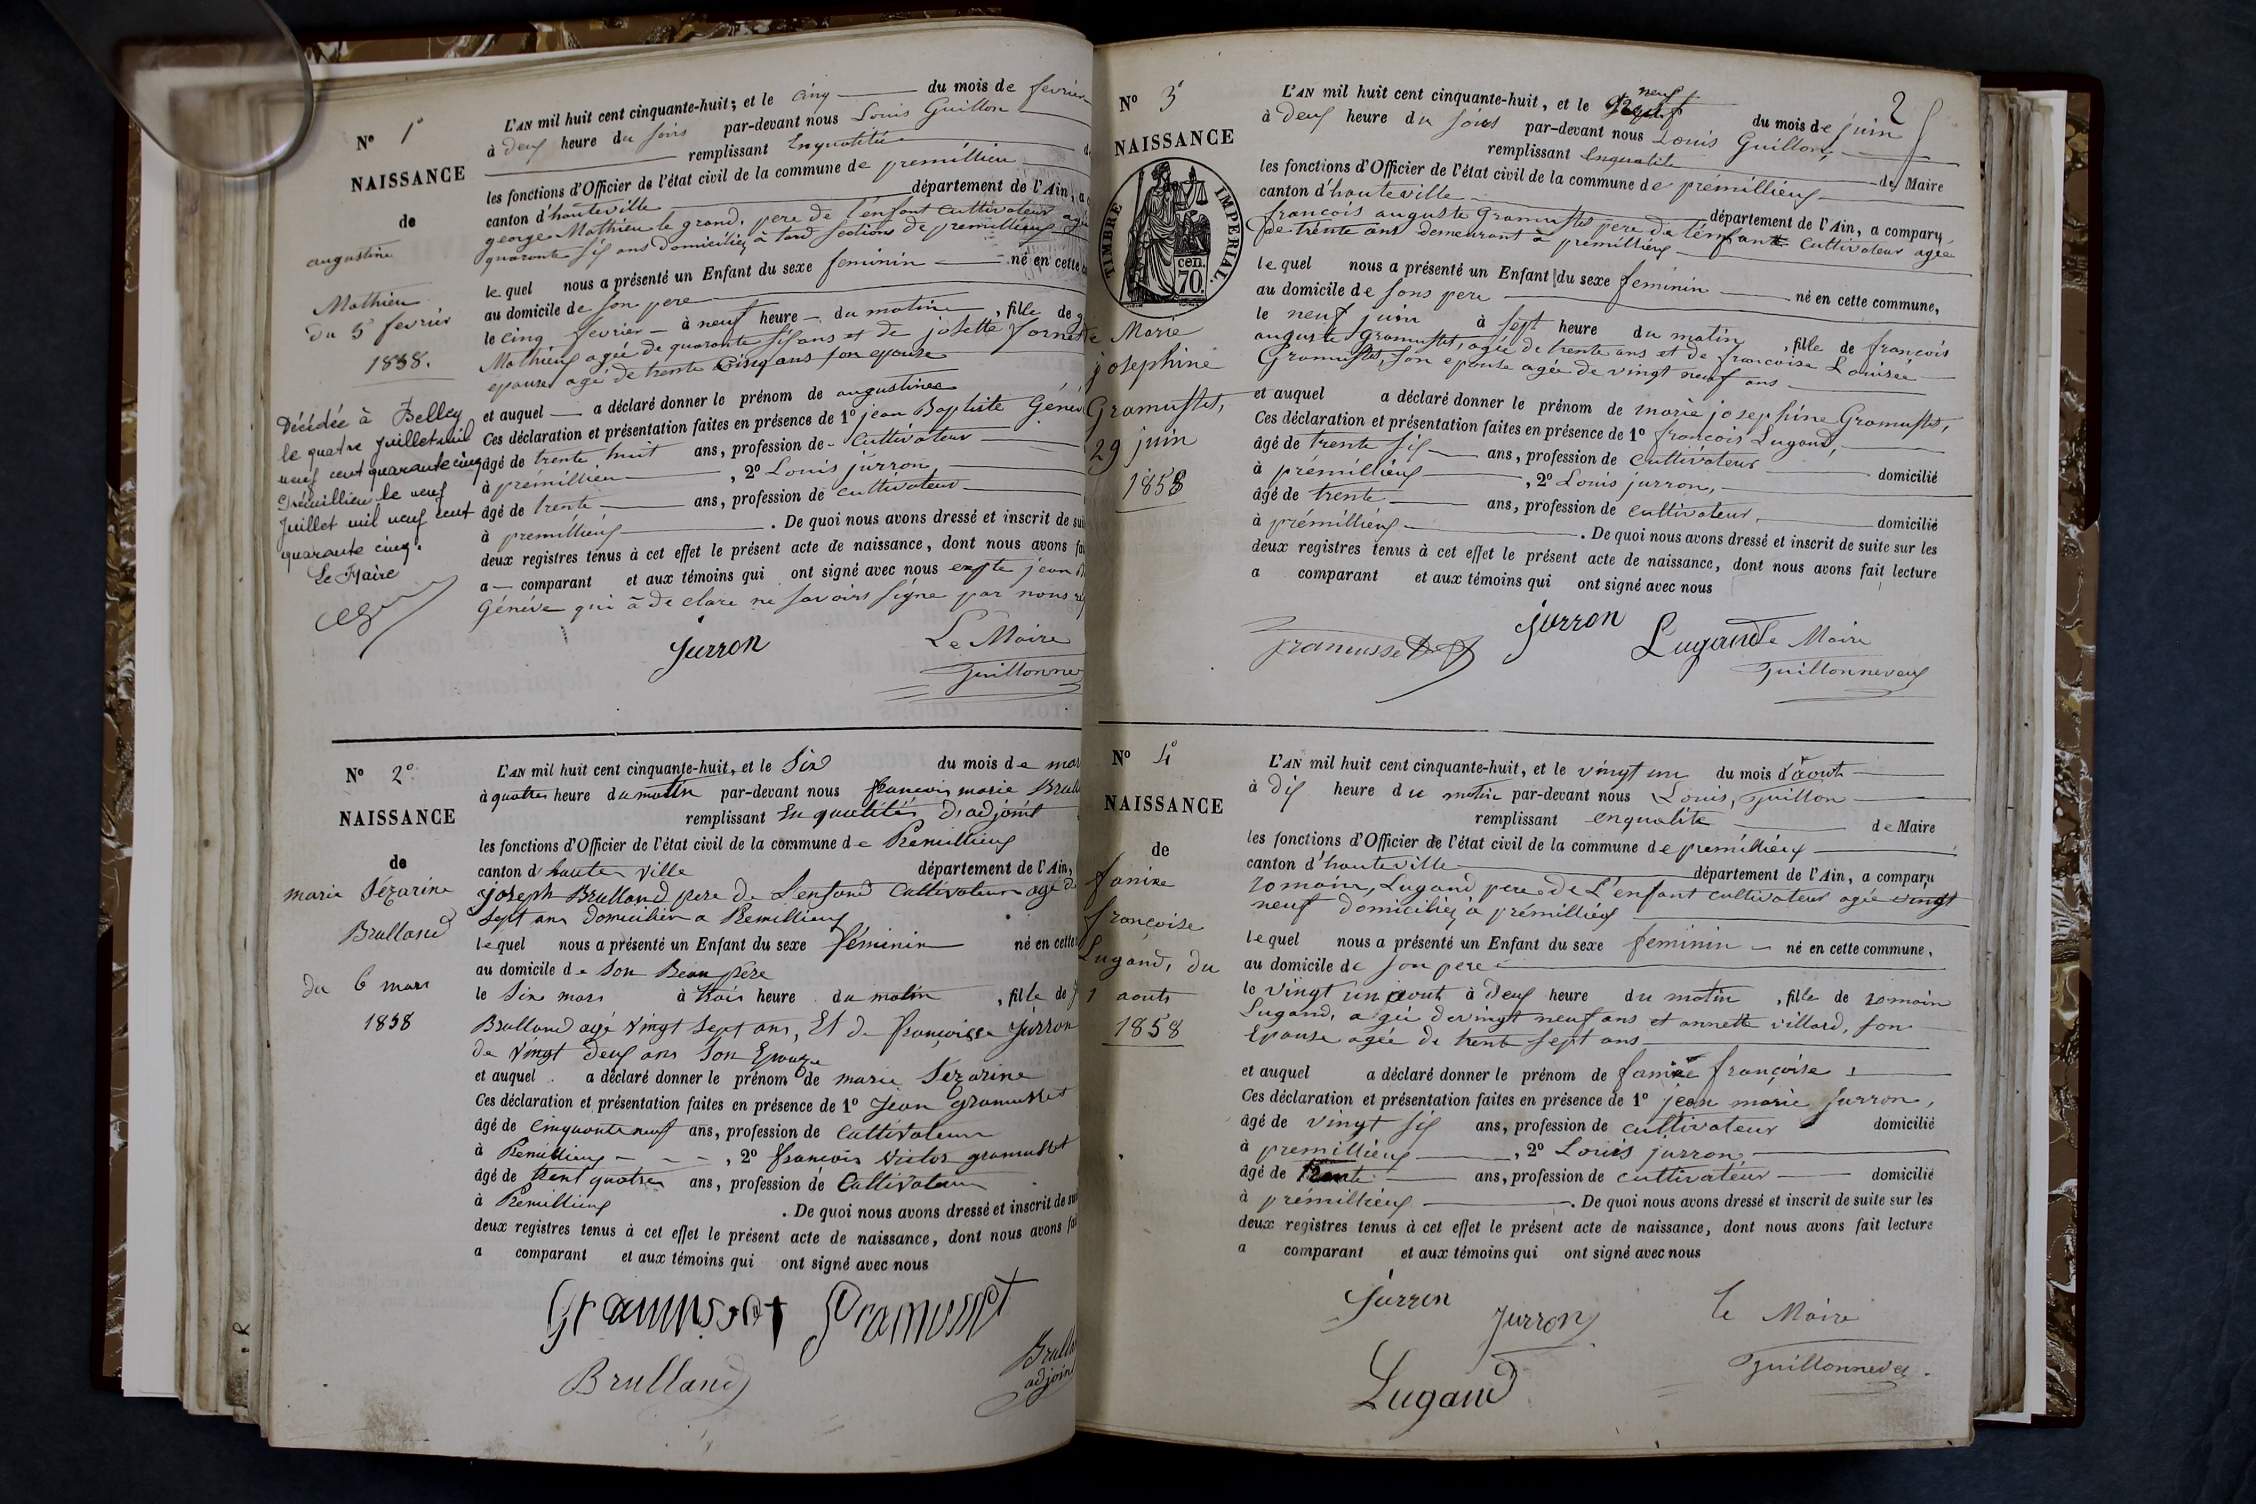 N° 1°
NAISSANCE
de
augustine
Mathieu
du 5 fevrier
1858.
Décédée à Belley
le quatre juillet mil
neuf cent quarante cinq
Prémillieu le neuf
Juillet mil neuf cent
quarante cinq.
Le Maire
L'AN mil huit cent cinquante-huit; et le cinq du mois de fevrier
à deux heure du soirs par-devant nous Louis Guillon
remplissant Enqualitée
les fonctions d'Officier de l'état civil de la commune de premillieu
canton d'hauteville département de l'Ain, a
george Mathieu le grand. pere de l'enfant cultivateur agé
quarante six ans domiciliez à tard sections de premillieux
le quel nous a présenté un Enfant du sexe feminin né en cette
au domicile de son pere
le cinq fevrier à neuf heure du matin, fille de g
Mathieu agée de quarante six ans et de josette fornet
epouse agé de trente cinq ans son epouse
et auquel a déclaré donner le prénom de augustinee
Ces déclaration et présentation faites en présence de 1° jean Baptiste Généve
âgé de trente huit ans, profession de cultivateur
à prémillieu, 2° Louis jurron
âgé de trente ans, profession de cultivateur
à premillieux. De quoi nous avons dressé et inscrit de sui
deux registres tenus à cet effet le présent acte de naissance, dont nous avons fai
a comparant et aux témoins qui ont signé avec nous expte jean B
Généve qui à de clare ne savoirs signe par nous
Jurron
Le Maire
Guillonne
N° 2°
NAISSANCE
de
marie Sézarine
Brulland
du 6 mars
1858
L'AN mil huit cent cinquante-huit, et le Six du mois de mar
à quatres heure du matin par-devant nous francois marie Brull
remplissant En qualitée d'adjoint
les fonctions d'Officier de l'état civil de la commune de Premillieux
canton d hauter ville département de l'Ain,
joseph Brulland pere de L'enfand Cultivateur agé de
sept ans domicilier a Premillieux
le quel nous a présenté un Enfant du sexe féminin né en cette
au domicile de son Beau père
le Six mars à trois heure du matin, fille de j
Brulland agé vingt sept ans, Et de françoisse Jurron
de vingt deux ans son Epouze
et auquel a déclaré donner le prénom de marie Sézarine
Ces déclaration et présentation faites en présence de 1° Jean gramusset
âgé de cinquante neuf ans, profession de Cultivateur
à Premillieux, 2° francois victor gramusset
âgé de trent quatre ans, profession de Cultivateur
à Premillieux. De quoi nous avons dressé et inscrit de sui
deux registres tenus à cet effet le présent acte de naissance, dont nous avons fai
a comparant et aux témoins qui ont signé avec nous
Gramusset Gramusset
Brulland
Brulla
adjoin
2
N° 3°
NAISSANCE
TIMBRE IMPERIAL.
cen.
70.
de Marie
josephine
Gramusset,
29 juin
1858
L'AN mil huit cent cinquante-huit, et le neuf du mois de juin
à deux heure du soirs par-devant nous Louis Guillon,
remplissant Enqualité de Maire
les fonctions d'Officier de l'état civil de la commune de prémillieux
canton d'hauteville département de l'Ain, a comparu
francois auguste Gramusset pere de l'enfant cultivateur agée
de trente ans demeurant à prémillieux
le quel nous a présenté un Enfant du sexe feminin né en cette commune,
au domicile de sons pere
le neuf juin à sept heure du matin, fille de francois
auguste Gramusset, agée de trente ans et de francoise Louisée
Gramusset, son epouse agée de vingt neuf ans
et auquel a déclaré donner le prénom de marie josephine Gramusset,
Ces déclaration et présentation faites en présence de 1° francois Lugand,
âgé de trente six ans, profession de cultivateur domicilié
à prémillieux, 2° Louis jurron,
âgé de trente ans, profession de cultivateur, domicilié
à prémillieux. De quoi nous avons dressé et inscrit de suite sur les
deux registres tenus à cet effet le présent acte de naissance, dont nous avons fait lecture
a comparant et aux témoins qui ont signé avec nous
Gramusset
Jurron
Lugand
Le Maire
Guillonneveux
N° 4°
NAISSANCE
de
fanixe
françoise
Lugand, du
1 aouts
1858
L'AN mil huit cent cinquante-huit, et le vingt un du mois d'aout
à dix heure du matin par-devant nous Louis, Guillon
remplissant enqualité de Maire
les fonctions d'Officier de l'état civil de la commune de premillieux
canton d'hauteville département de l'Ain, a comparu
romain, Lugand pere de L'enfant cultivateur agée vingt
neuf domiciliez à prémillieux
le quel nous a présenté un Enfant du sexe feminin né en cette commune,
au domicile de son pere
le vingt un aout à deux heure du matin, fille de romain
Lugand, agée de vingt neuf ans et annette villard, son
Epouse agée de trente sept ans
et auquel a déclaré donner le prénom de françoise
Ces déclaration et présentation faites en présence de 1° jean marie Jurron,
âgé de vingt six ans, profession de cultivateur domicilié
à premillieux, 2° Louis jurron
âgé de trente ans, profession de cultivateur domicilié
à prémillieux. De quoi nous avons dressé et inscrit de suite sur les
deux registres tenus à cet effet le présent acte de naissance, dont nous avons fait lecture
a comparant et aux témoins qui ont signé avec nous
Jurron
Jurron
Le Maire
Guillonnevex
Lugand